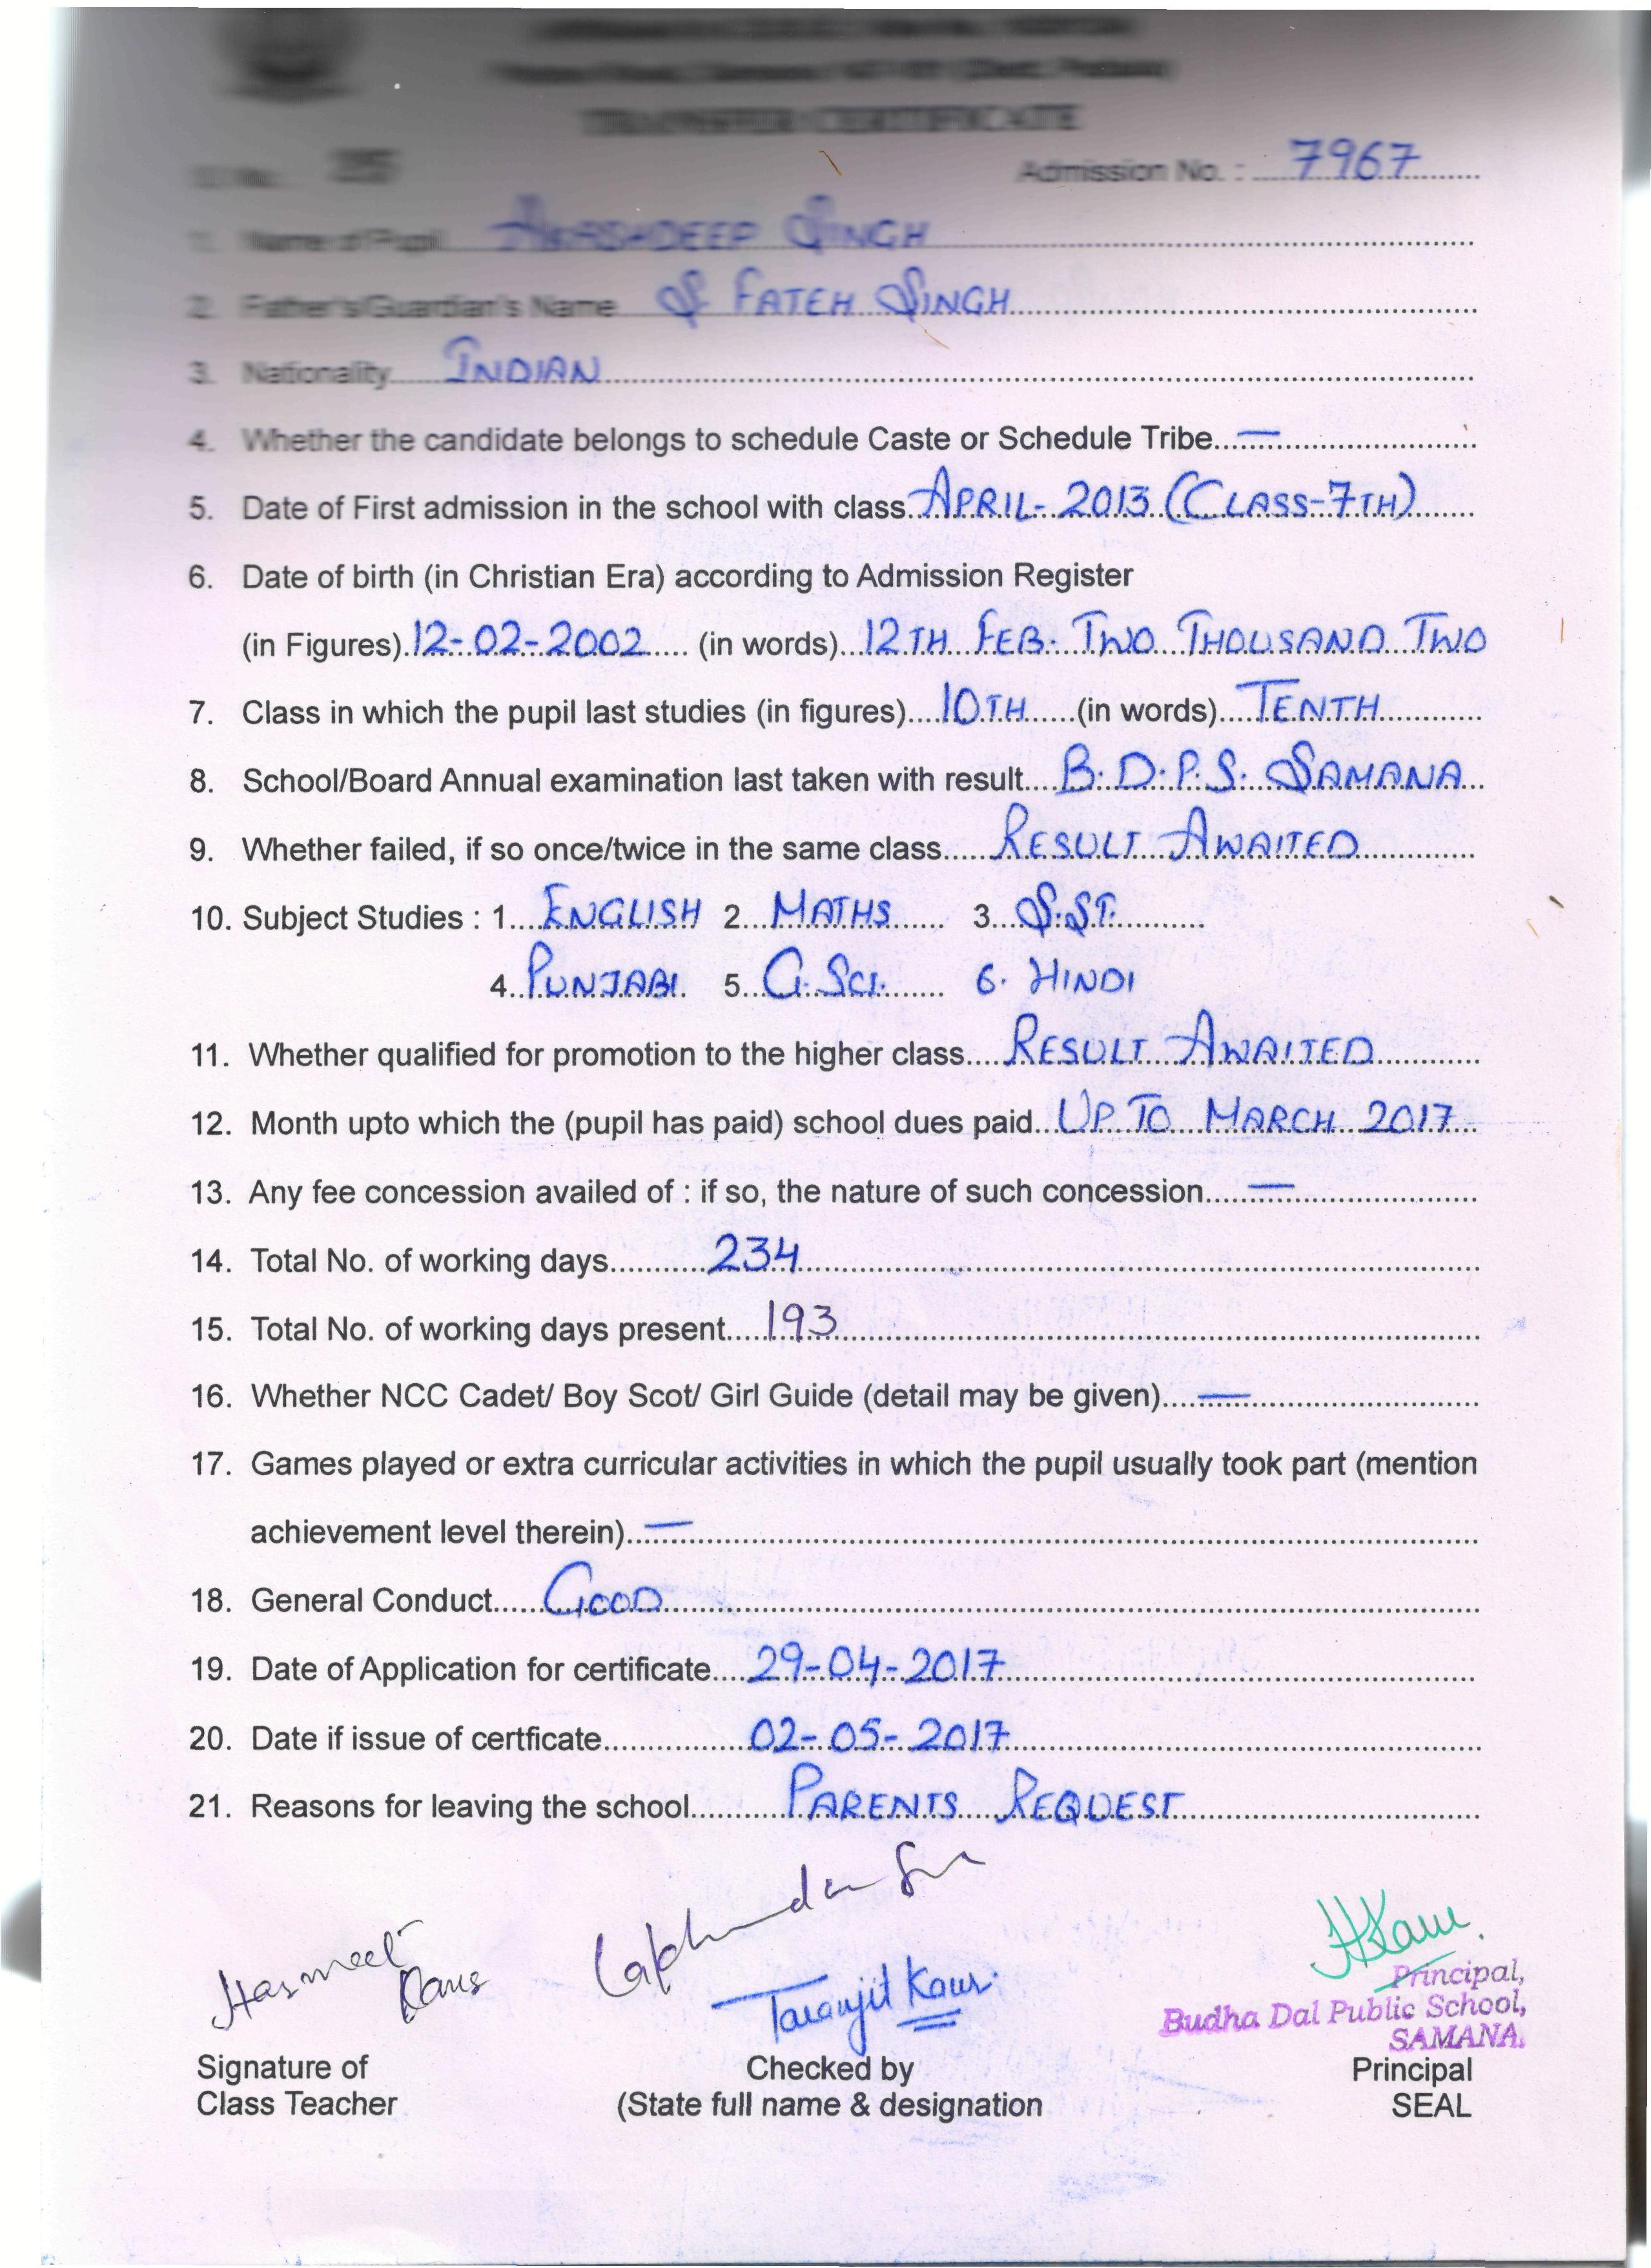 TRANSFER CERTIFICATE
Admission No. : 7967
1. Name of Pupil AKASHDEEP SINGH
2. Father's/Guardian's Name S. FATEH SINGH
3. Nationality INDIAN
4. Whether the candidate belongs to schedule Caste or Schedule Tribe —
5. Date of First admission in the school with class APRIL- 2013 (CLASS-7TH)
6. Date of birth (in Christian Era) according to Admission Register
(in Figures) 12-02-2002 (in words) 12TH FEB. TWO THOUSAND TWO
7. Class in which the pupil last studies (in figures) 10TH (in words) TENTH
8. School/Board Annual examination last taken with result B.D.P.S. SAMANA
9. Whether failed, if so once/twice in the same class RESULT AWAITED
10. Subject Studies : 1. ENGLISH 2. MATHS 3. S.ST.
4. PUNJABI 5. G.SCI. 6. HINDI
11. Whether qualified for promotion to the higher class RESULT AWAITED
12. Month upto which the (pupil has paid) school dues paid UP TO MARCH 2017
13. Any fee concession availed of : if so, the nature of such concession —
14. Total No. of working days 234
15. Total No. of working days present 193
16. Whether NCC Cadet/ Boy Scot/ Girl Guide (detail may be given) —
17. Games played or extra curricular activities in which the pupil usually took part (mention
achievement level therein) —
18. General Conduct GOOD
19. Date of Application for certificate 29-04-2017
20. Date if issue of certficate 02-05-2017
21. Reasons for leaving the school PARENTS REQUEST
Harmeet Kaur
Taranjit Kaur
HKaur
Principal,
Budha Dal Public School,
SAMANA.
Signature of Checked by Principal
Class Teacher (State full name & designation SEAL